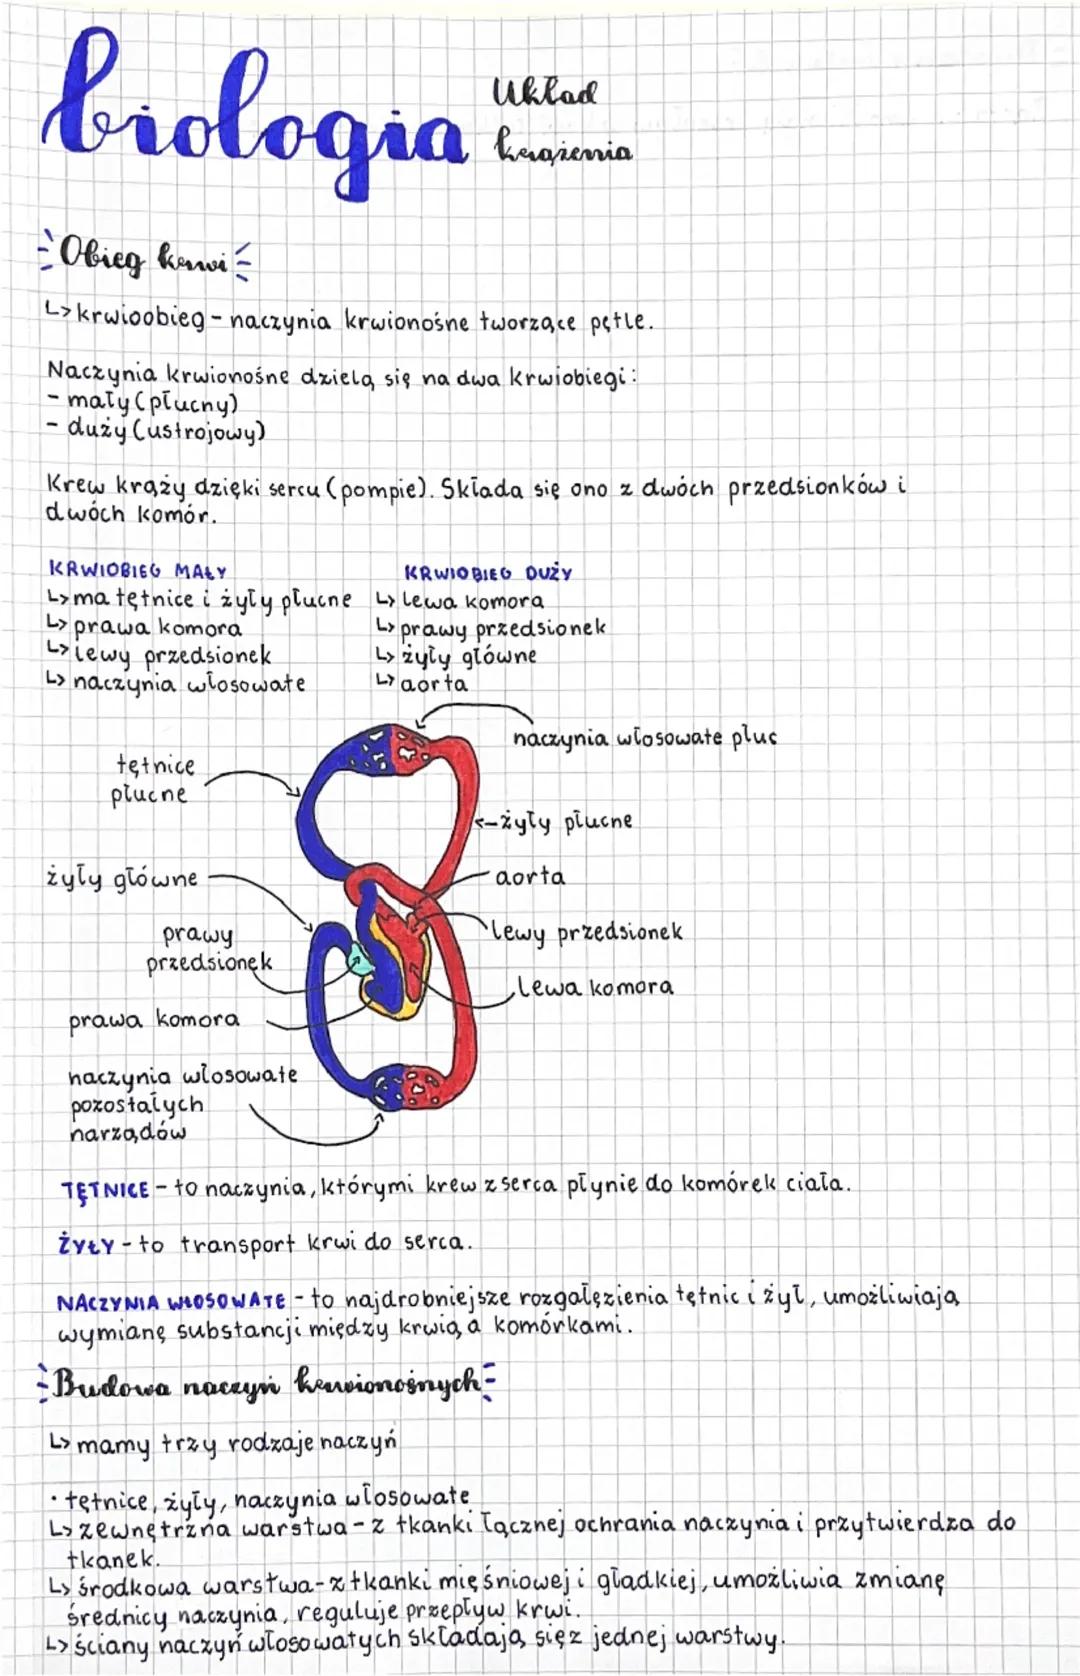 biologia
Układ
krążenia
Obieg krwi
↳ krwioobieg - naczynia krwionośne tworzące pętle.
Naczynia krwionośne dzielą się na dwa krwiobiegi:
- mały (płucny)
- duży (ustrojowy)
Krew krąży dzięki sercu (pompie). Składa się ono z dwóch przedsionków i
dwóch komór.
KRWIOBIEG MAŁY
↳ ma tętnice i żyły płucne
↳ prawa komora
↳ lewy przedsionek
↳ naczynia włosowate
KRWIOBIEG DUŻY
↳ lewa komora
↳ prawy przedsionek
↳ żyły główne
↳ aorta
naczynia włosowate płuc
tętnice
płucne
żyły płucne
żyły główne
aorta
prawy
przedsionek
lewy przedsionek
lewa komora
prawa komora
naczynia włosowate
pozostałych
narządów
TĘTNICE - to naczynia, którymi krew z serca płynie do komórek ciała.
ŻYŁY - to transport krwi do serca.
NACZYNIA WŁOSOWATE - to najdrobniejsze rozgałęzienia tętnic i żył, umożliwiają
wymianę substancji między krwią a komórkami.
Budowa naczyń krwionośnych
↳ mamy trzy rodzaje naczyń
· tętnice, żyły, naczynia włosowate
↳ zewnętrzna warstwa - z tkanki łącznej ochrania naczynia i przytwierdza do
tkanek.
↳ środkowa warstwa - z tkanki mięśniowej i gładkiej, umożliwia zmianę
średnicy naczynia, reguluje przepływ krwi.
↳ ściany naczyń włosowatych składają się z jednej warstwy.